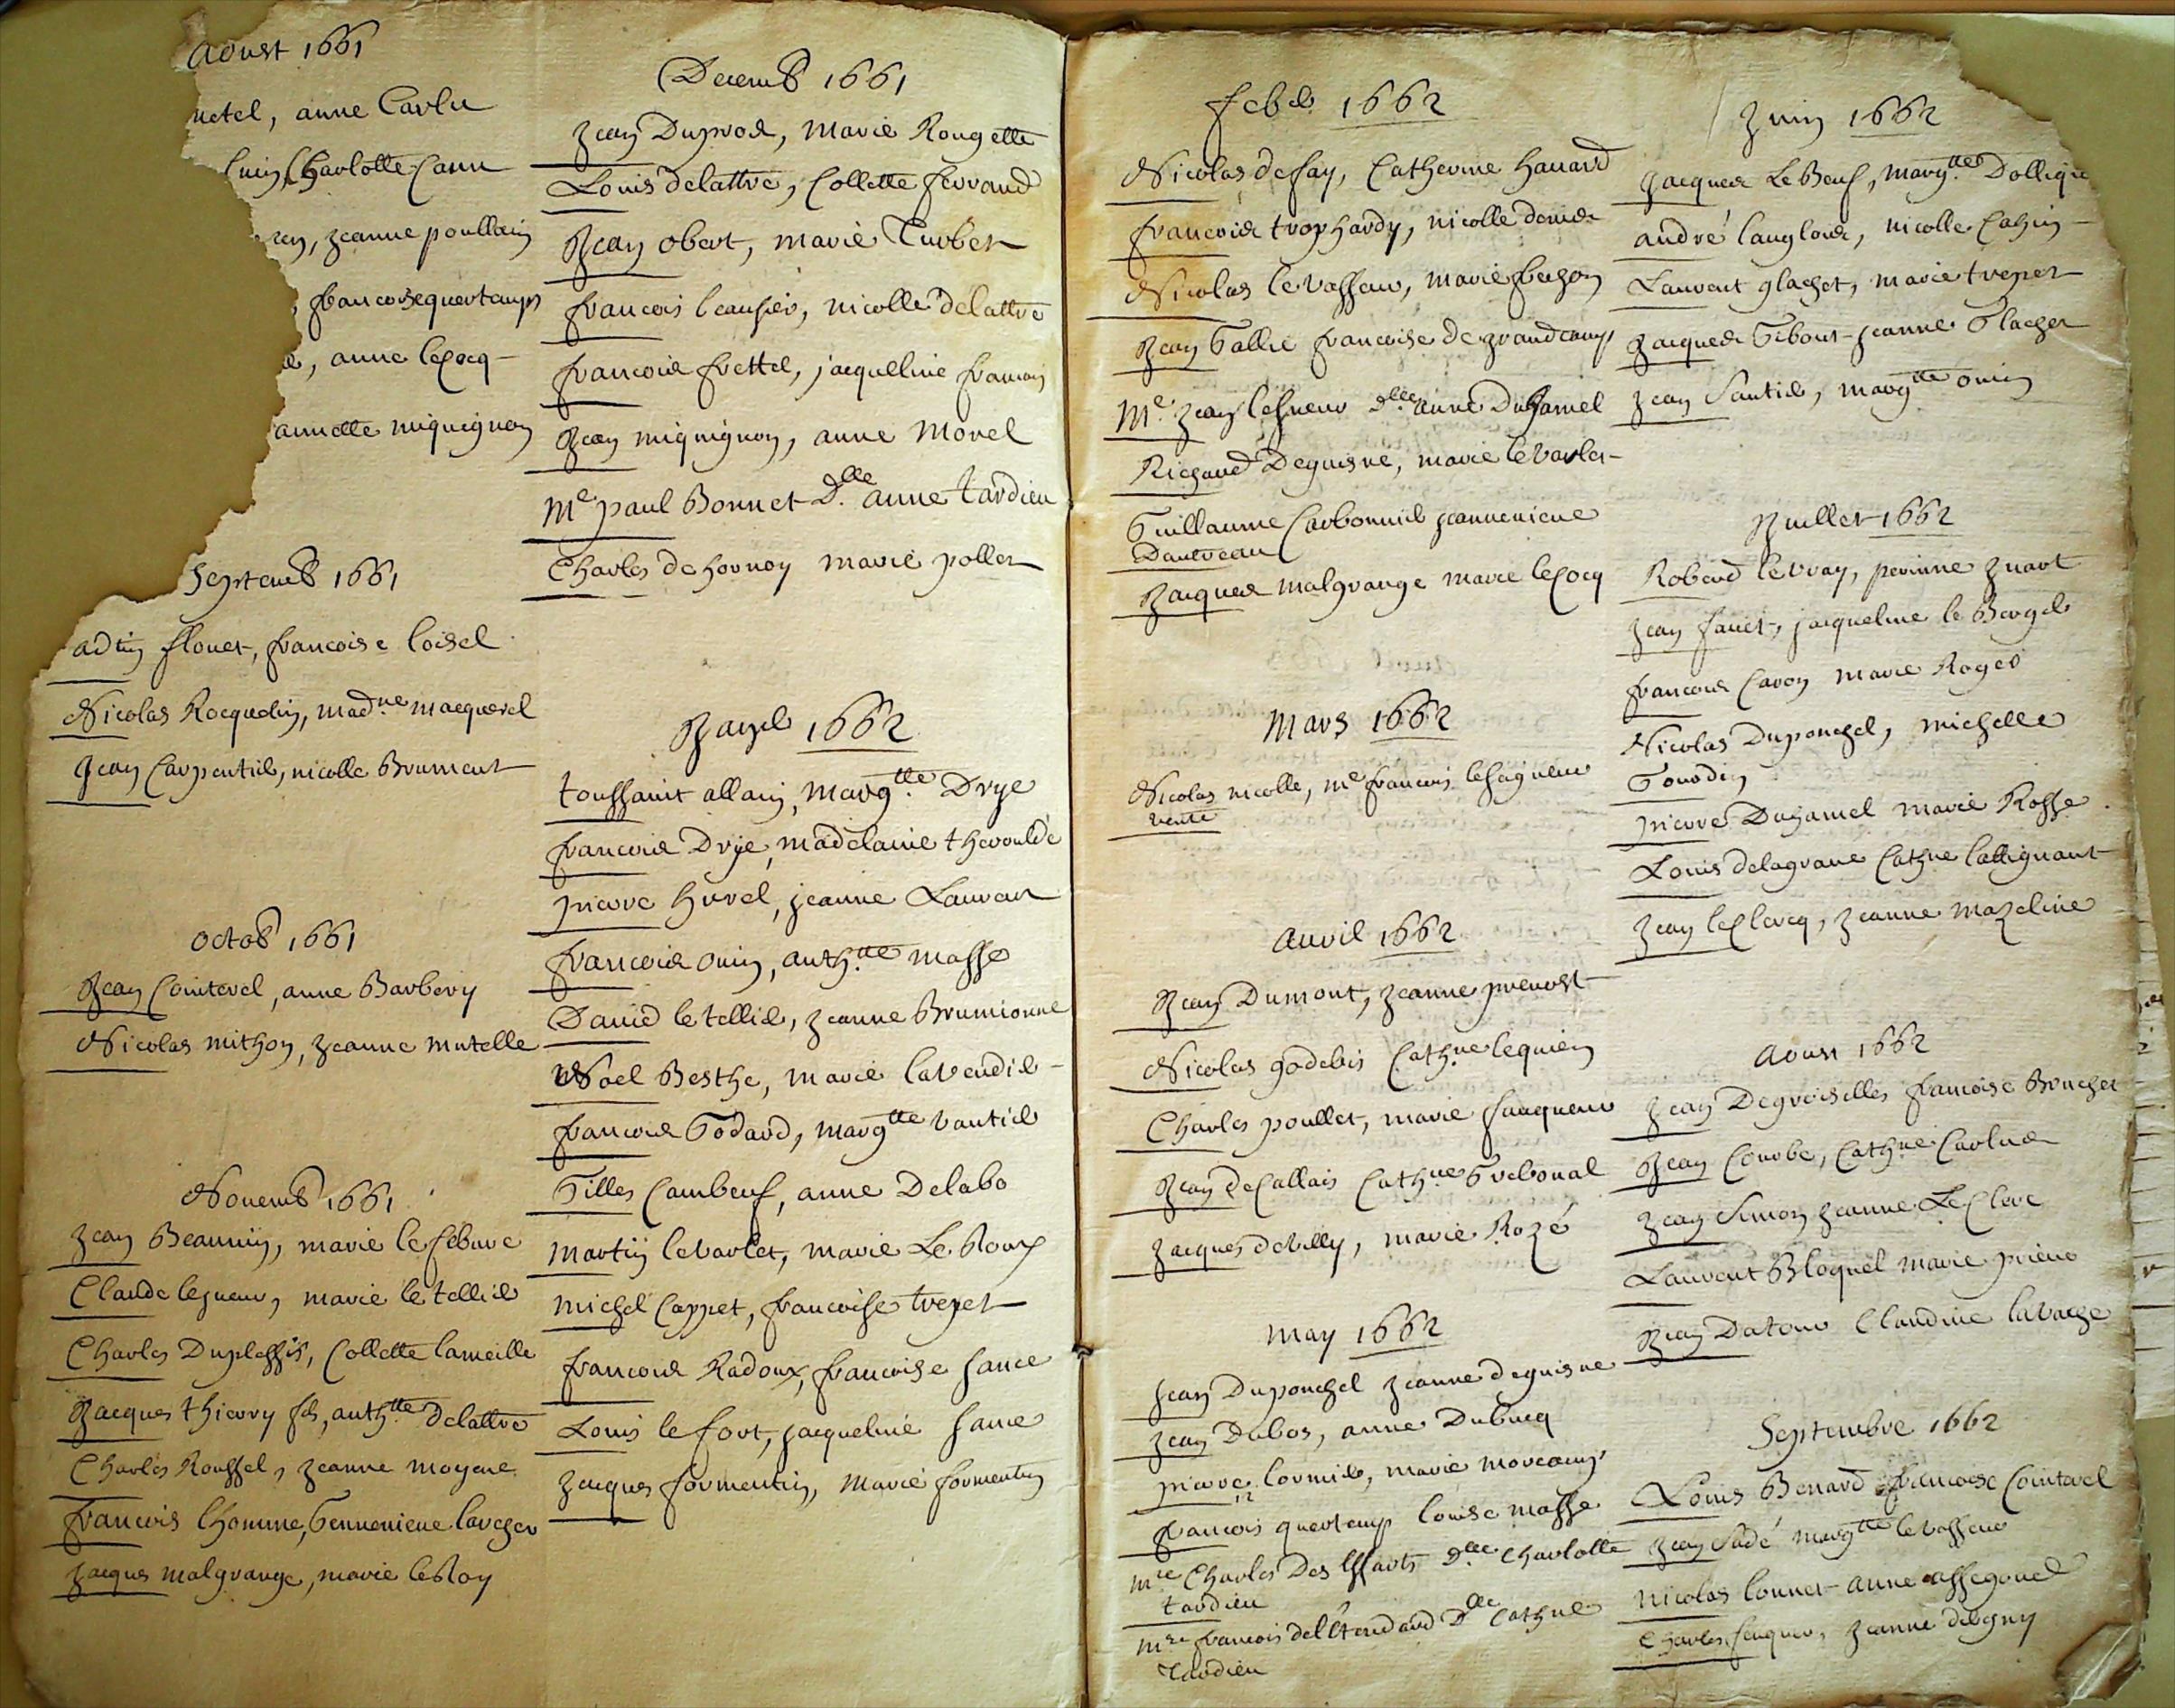 Aoust 1661
netel, anne Carlu
luin, Charlotte Cann
ren, Jeanne poullain
, francoise quertemps
anne lecocq
annette miquignon
Septemb 1661
adrin flouet, francoise loisel
Nicolas Rocquelin, madne macquerel
Jean Carpentier, nicolle Brument
Octob 1661
Jean Cointerel, anne Barbery
Nicolas mithon, Jeanne mutelle
Novemb 1661
Jean Beaunin, marie lefebure
Claude lesueur, marie le tellier
Charles Duplessis, Collette lameille
Jacques thierry fls, anthtte delattre
Charles Roussel, Jeanne moyene
francois lhomme, Gennevieve larcher
Jacques malgrange, marie le Roy
Decemb 1661
Jean Duprod, Marie Rougette
Louis delattre, Collette ferrand
Jean obert, marie Turbet
francois beausier, nicolle delattre
francois frettel, jacqueline francois
Jean miquignon, anne Morel
Me paul Bonnet Dlle anne tardieu
Charles de hornoy marie pollet
Janvr 1662
toussaint allain, margtte Drye
francois Drye, madelaine theroulde
pierre hurel, jeanne Laurent
francois ouin, anthtte masse
David le tellier, Jeanne Brumionne
Noel Besthe, marie lavendier
francois Godard, margtte vautier
Gilles Cambeuf, anne Delabo
martin levarlet, marie Le Roux
michel Cappet, francoise trepet
francois Radoux, francoise sance
Louis le fort, jacqueline sance
Jacques formentin, Marie formentin
febr 1662
Nicolas defay, Catherine hauard
francois trophardy, nicolle denis
Nicolas levasseur, marie fuzon
Jean Gallie francoise de grandcamp
Me Jean lesueur Dlle anne Duhamel
Richard Deguisne, marie levarlet
Guillaume Carbonnier jeannevieve
Dautreau
Jacques malgrange marie lecocq
Mars 1662
Nicolas nicolle, me francois lesigneur
vente
auvil 1662
Jean Dumont, Jeanne prevost
Nicolas godebin Cathne lequien
Charles poullet, marie sauqueur
Jean deCallais Cathne Grebonal
Jacques devilly, marie Rozé
may 1662
Jean Duponchel Jeanne deguisne
Jean Dubos, anne Dubucq
pierre lormier, marie morcamp
francois quertemp louise masse
mre Charles Des Essarts Dlle Charlotte
tardieu
mre francois del Etendard Dlle Cathne
Tardieu
Juin 1662
Jacques Le Beuf, margtte Dollique
andré langlois, nicolle Cahin
Laurent glachet, marie trepet
Jacques Gibout jeanne Glachet
Jean Santier, margtte ouin
Juillet 1662
Roberd levray, perinne Juart
Jean fauet, jacqueline le Berger
francois Caron marie Roger
Nicolas Duponchel, michelle
Gourdin
pierre Duhamel marie Rosse
Louis delagrave Cathne lattignant
Jean leclercq, Jeanne mazeline
Aoust 1662
Jean Degroiselles francoise Bruchet
Jean Courbe, Cathne Carlue
Jean Simon Jeanne Le Clerc
Laurent Bloquel marie prieur
Jean Datour Claudine lavache
Septembre 1662
Louis Benard francoise Cointerel
Jean Sadé margtte levasseur
Nicolas lonnet anne assegond
Charles Jacques, Jeanne deligny